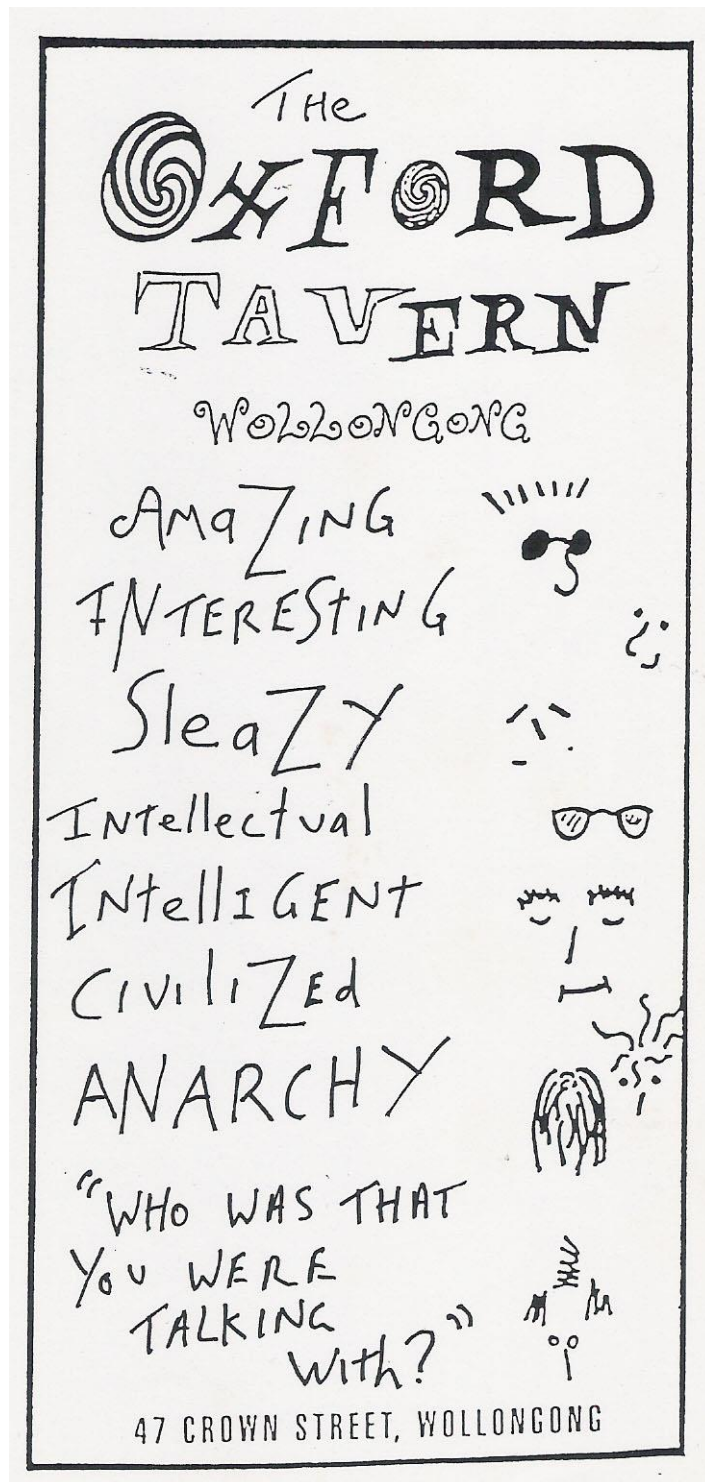 The
OXFORD
TAVERN
WOLLONGONG
AmaZING
INTERESTING
SleaZY
INTellectual
INtellIGENt
CIVIlIZEd
ANARCHY
"WHO WAS THAT
YOU WERE
TALKING
With?"
47 CROWN STREET, WOLLONGONG